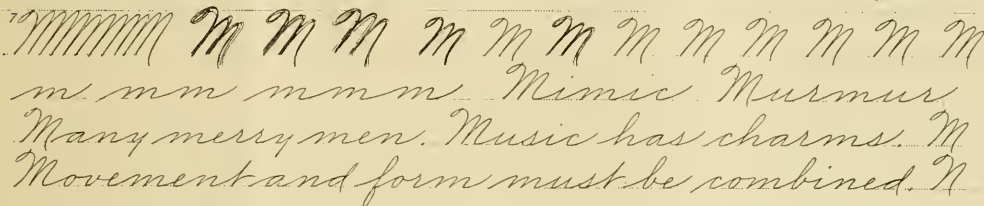 M M M M M M M M M M M M
m mm mmm Mimic Murmur
Many merry men. Music has charms. M
Movement and form must be combined. N